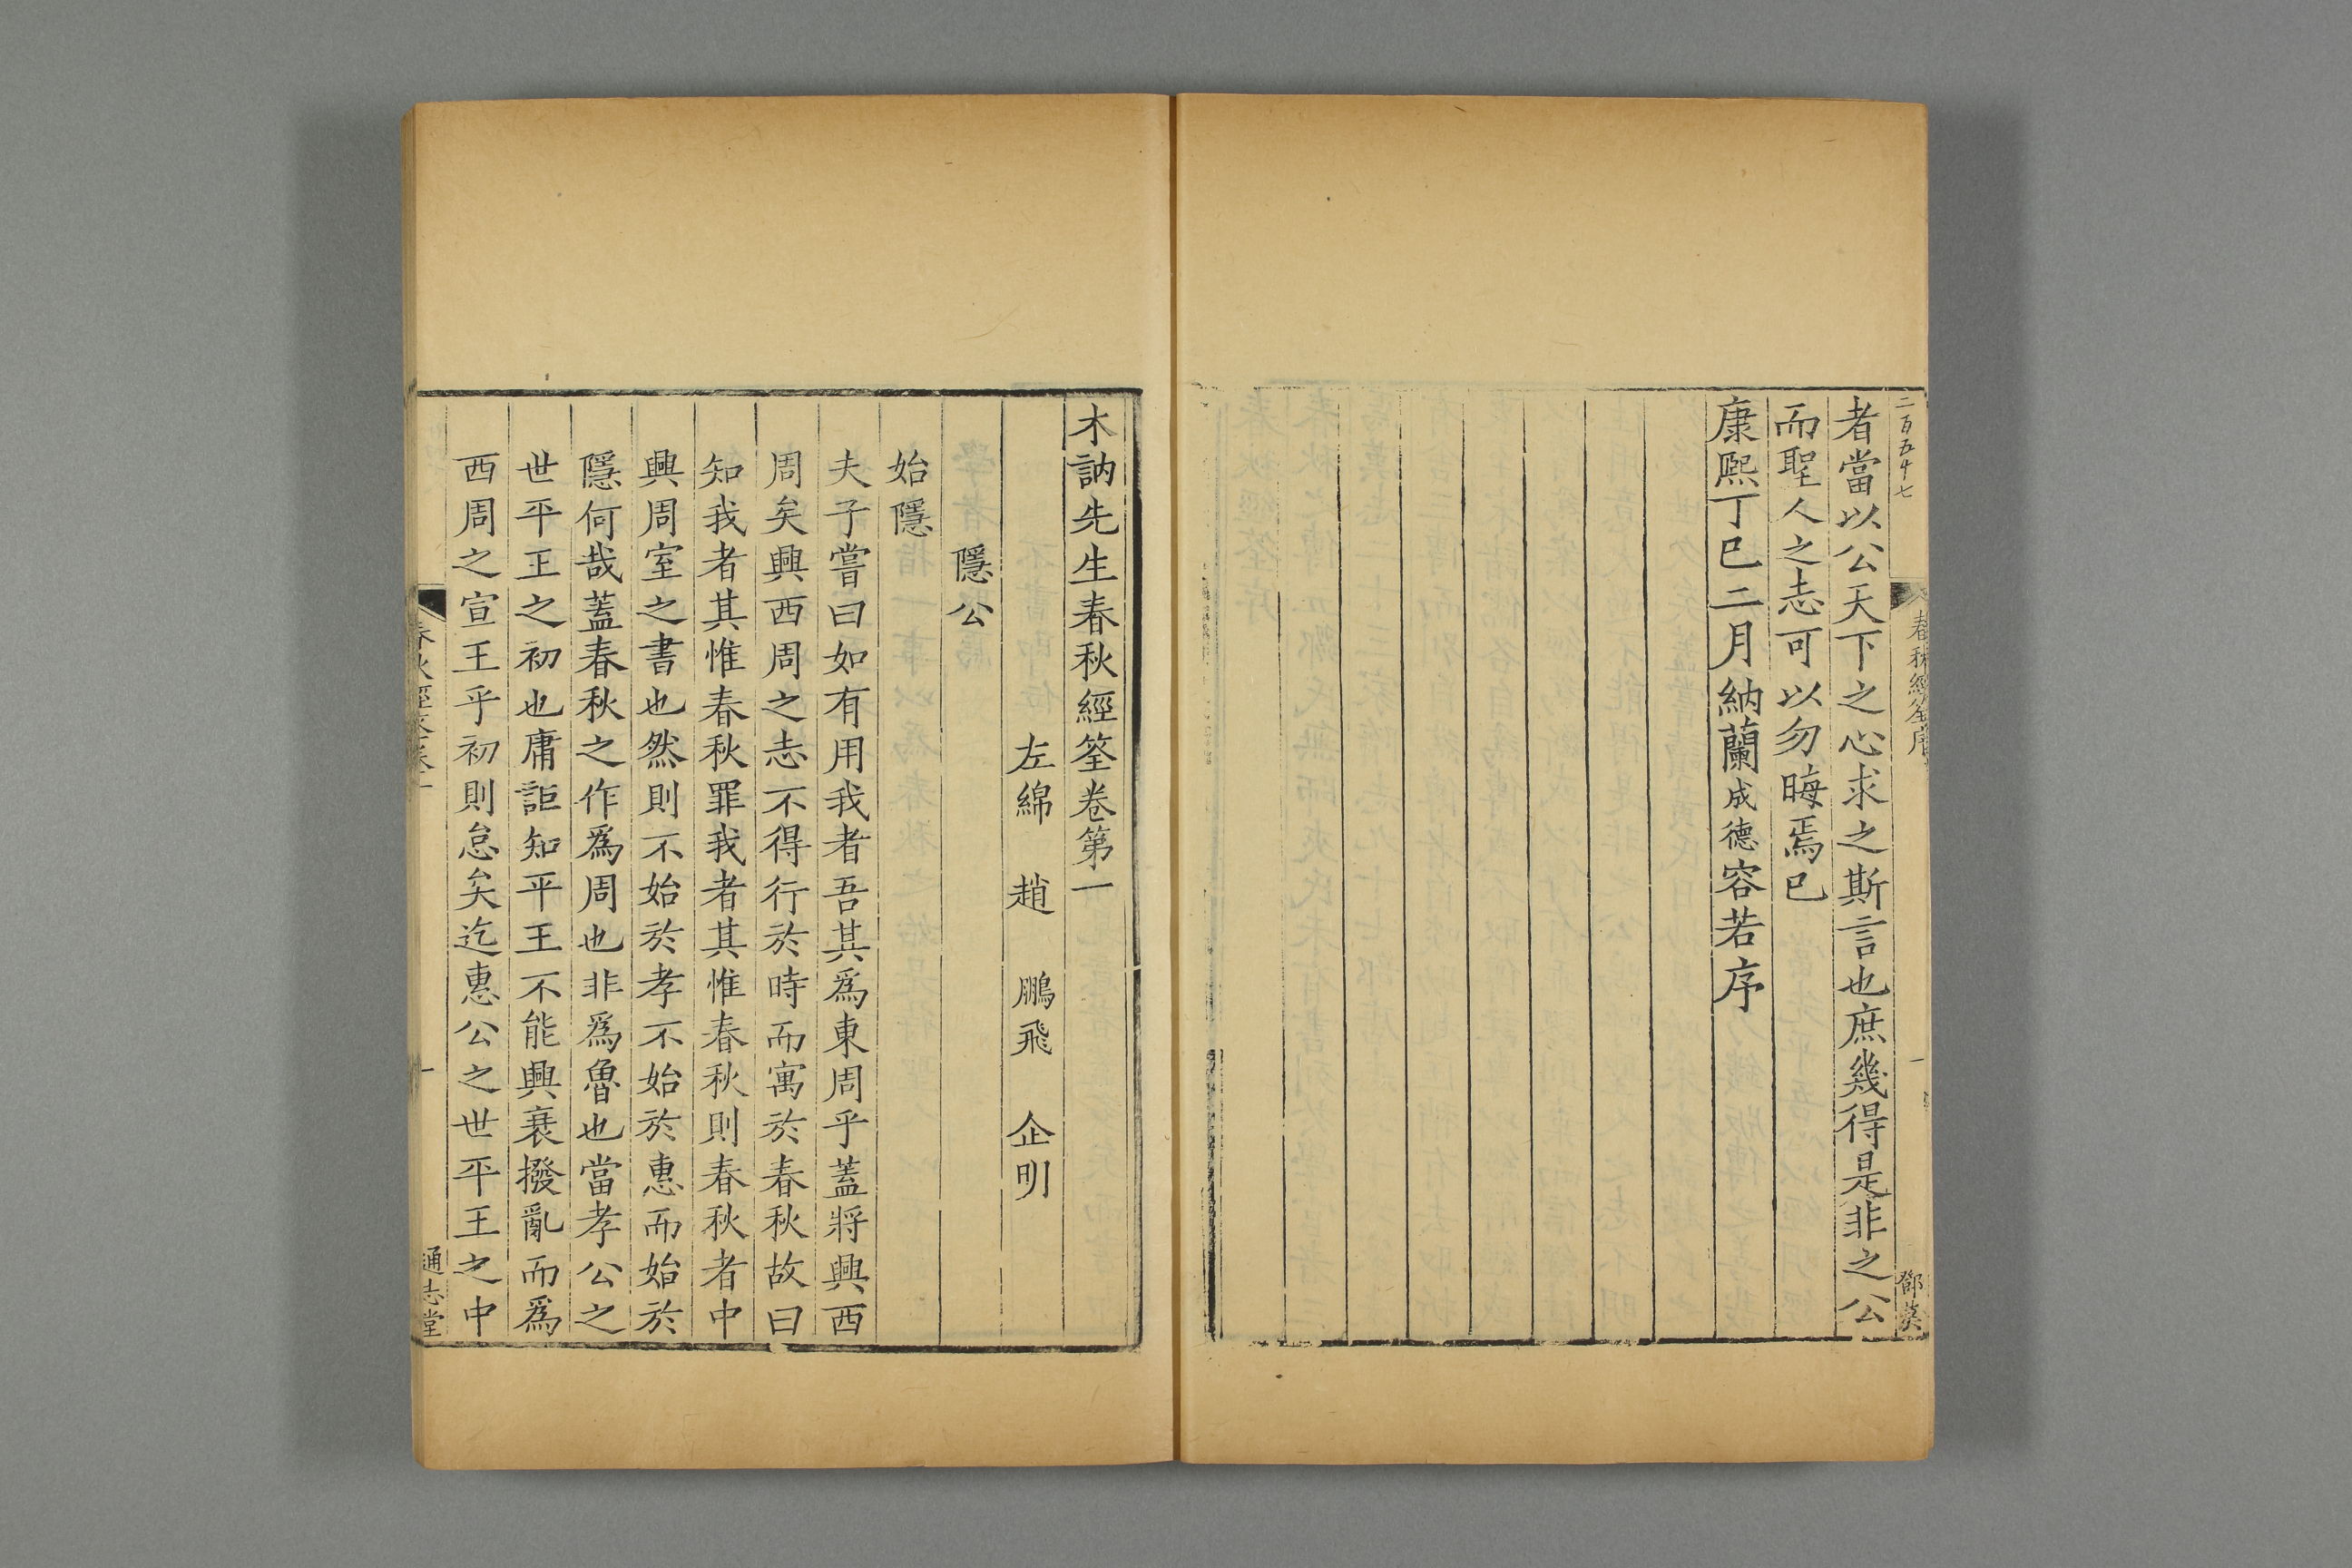 二百五十七
春秋經筌序
一
鄧茂
者當以公天下之心求之斯言也庶幾得是非之公
而聖人之志可以勿晦焉已
康熙丁巳二月納蘭成德容若序
木訥先生春秋經筌卷第一
左綿 趙 鵬飛 企明
隱公
始隱
夫子嘗曰如有用我者吾其爲東周乎蓋將興西
周矣興西周之志不得行於時而寓於春秋故曰
知我者其惟春秋罪我者其惟春秋則春秋者中
興周室之書也然則不始於孝不始於惠而始於
隱何哉蓋春秋之作爲周也非爲魯也當孝公之
世平王之初也庸詎知平王不能興衰撥亂而爲
西周之宣王乎初則怠矣迄惠公之世平王之中
春秋經筌卷一
一
通志堂